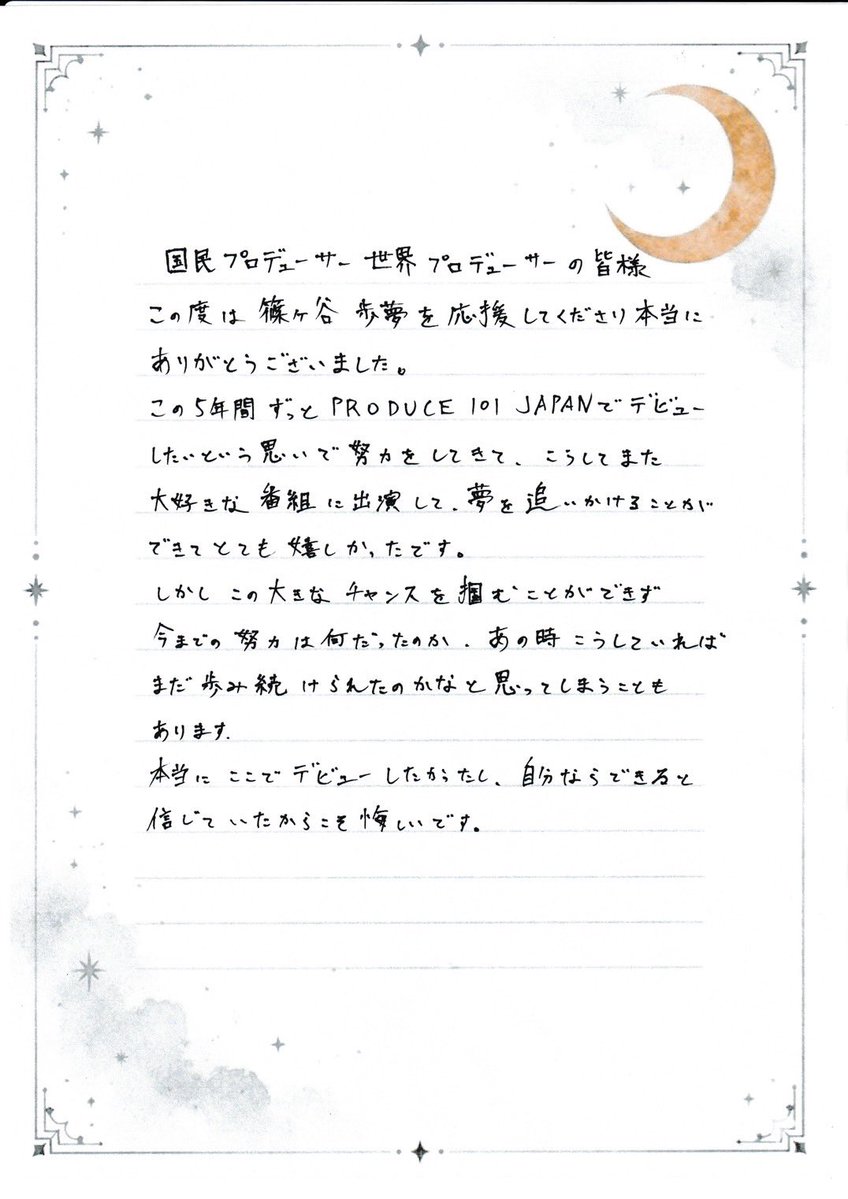 国民プロデューサー 世界プロデューサーの皆様
この度は 篠ヶ谷 歩夢を応援してくださり本当に
ありがとうございました。
この5年間ずっとPRODUCE 101 JAPANでデビュー
したいという思いで努力をしてきて、こうしてまた
大好きな番組に出演して、夢を追いかけることが
できてとても嬉しかったです。
しかしこの大きなチャンスを掴むことができず
今までの努力は何だったのか、あの時こうしていれば
まだ歩み続けられたのかなと思ってしまうことも
あります。
本当にここでデビューしたかったし、自分ならできると
信じていたからこそ悔しいです。